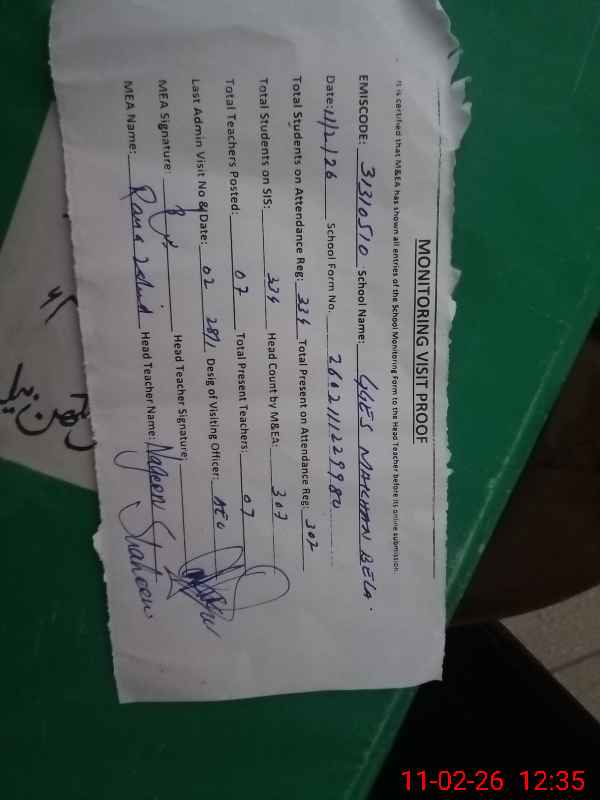 MONITORING VISIT PROOF
It is certified that M&EA has shown all entries of the School Monitoring Form to the Head Teacher before its online submission.
EMISCODE: 31310510 School Name: GGES MAKHAN BELA.
Date: 11/2/26 School Form No. 2602111229980
Total Students on Attendance Reg: 334 Total Present on Attendance Reg: 307
Total Students on SIS: 334 Head Count by M&EA: 307
Total Teachers Posted: 07 Total Present Teachers: 07
Last Admin Visit No & Date: 02 28/1 Desig of Visiting Officer: AEO
MEA Signature: Head Teacher Signature:
MEA Name: Rana Head Teacher Name: Shaheen
11-02-26 12:35